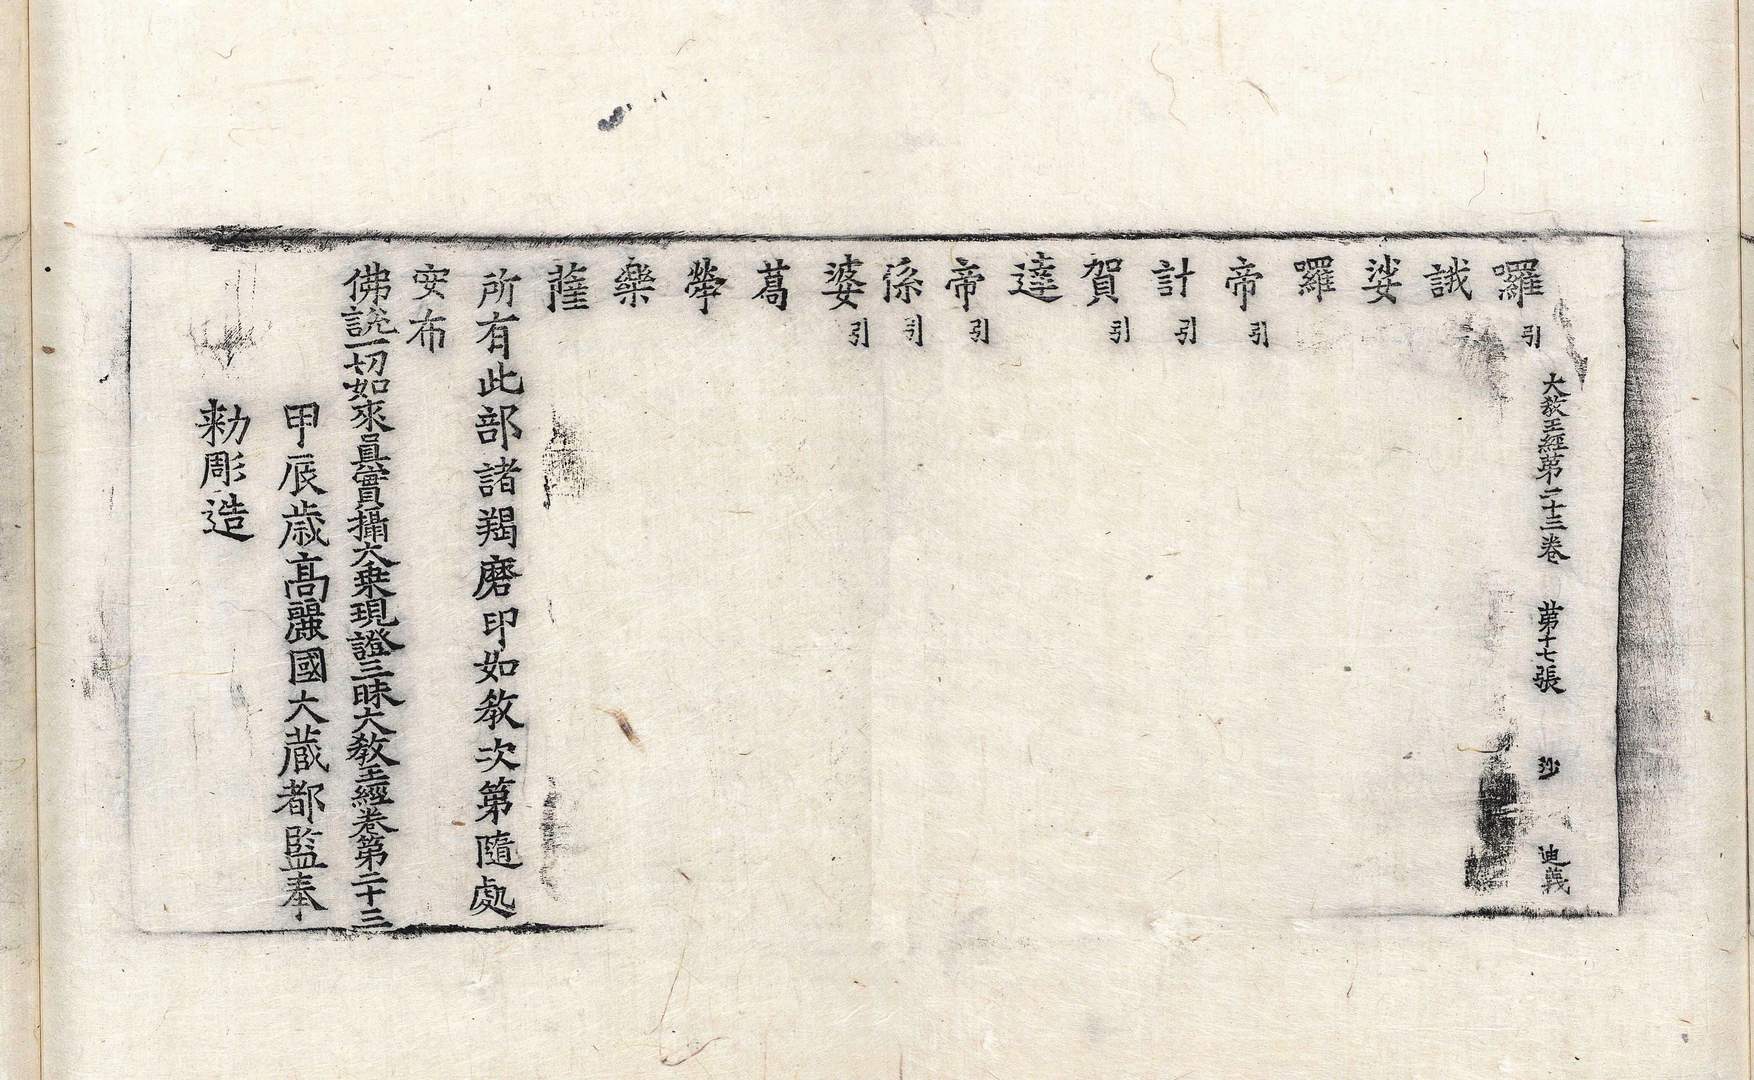 大敎王經第二十三卷 第十七張 沙 迪義
囉引
誐
娑
囉
帝引
計引
賀引
達
帝引
係引
婆引
蔿
犖
欒
薩
所有此部諸羯磨印如敎次第隨處
安布
佛說一切如來眞實攝大乘現證三昧大敎王經卷第二十三
甲辰歲高麗國大藏都監奉
勑彫造